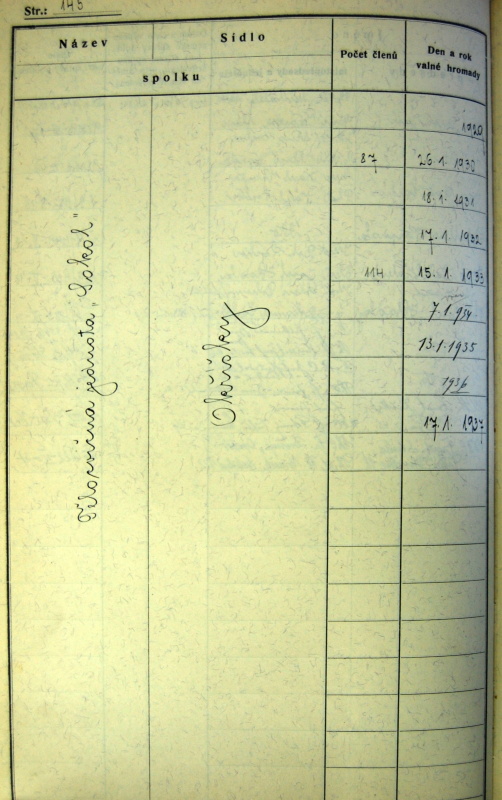 Str.: 145
Název
Sídlo
spolku
Počet členů
Den a rok
valné hromady
Tělocvičná jednota „Sokol"
Okříšky
1929
87 26.1.1930
18.1.1931
17.1.1932
114 15.1.1933
7.1.934
13.1.1935
1936
17.1.1937